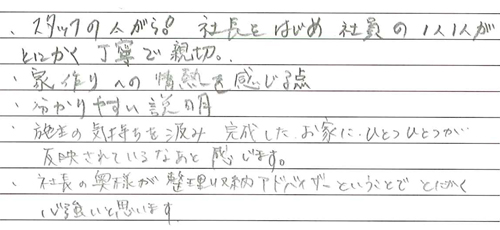 ・スタッフの人がら。社長をはじめ社員の1人1人が
とにかく丁寧で親切。
・家作りへの情熱を感じる点
・分かりやすい説明
・施主の気持ちを汲み 完成したお家に、ひとつひとつが
反映されているなあと感じます。
・社長の奥様が整理収納アドバイザーということでとにかく
心強いと思います